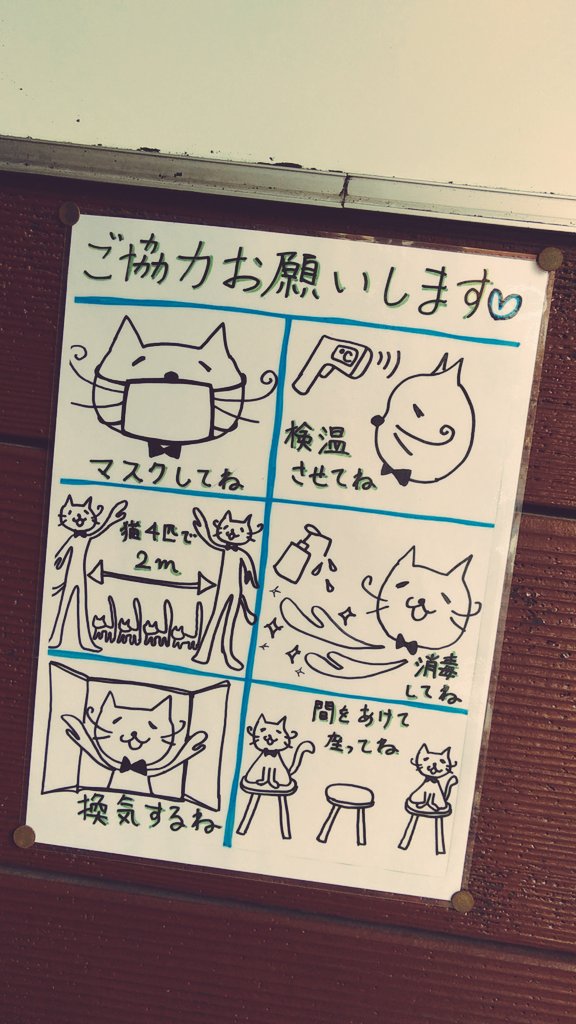 ご協力お願いします♡
マスクしてね
℃
検温
させてね
猫4匹で
2m
消毒
してね
換気するね
間をあけて
座ってね